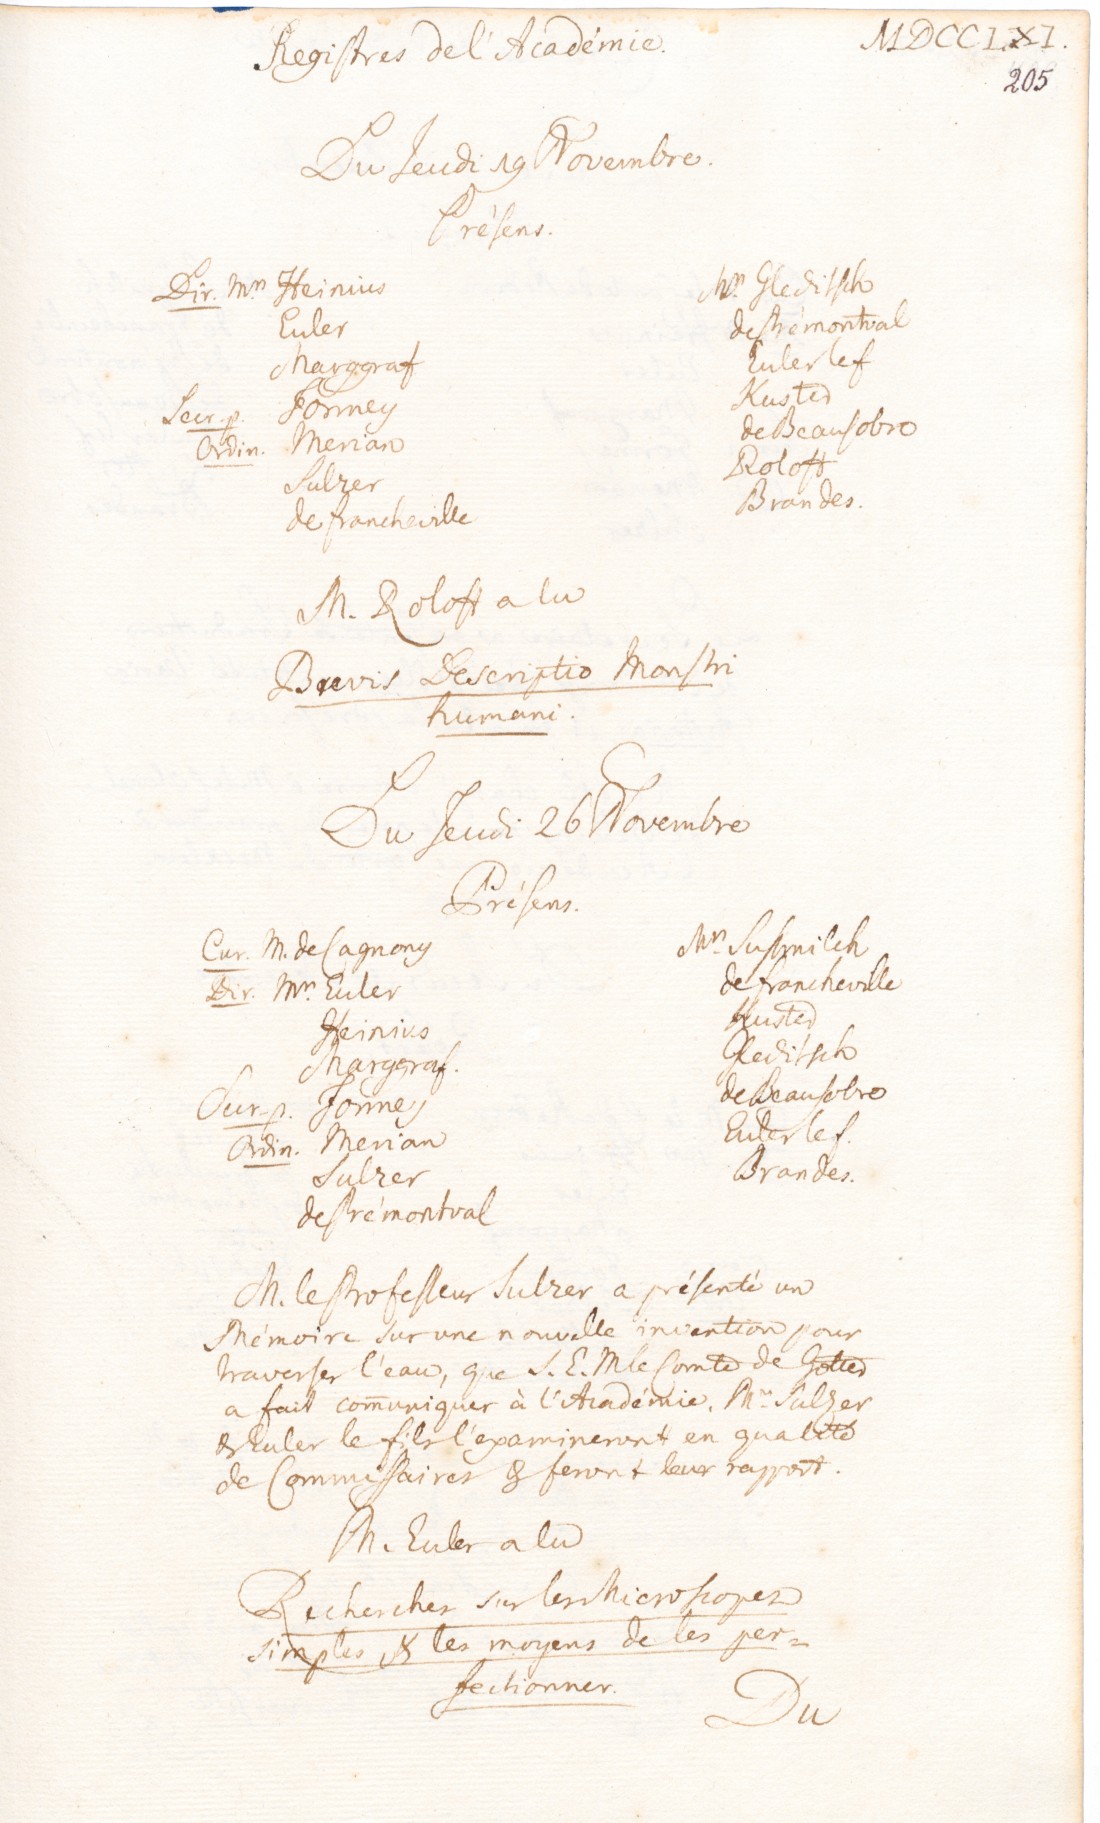 Registres de l'Académie.
MDCCLXI.
205
Du Jeudi 19 Novembre.
Présens.
Dir. Mrs Heinius
Euler
Marggraf
Secr. p. Formey
Ordin. Merian
Sulzer
de Francheville
Mrs Gleditsch
de Prémontval
Euler le f
Kuster
de Beausobre
Roloff
Brandes.
M. Roloff a lu
Brevis Descriptio Monstri
humani.
Du Jeudi 26 Novembre
Présens.
Cur. M. de Cagnony
Dir. Mrs Euler
Heinius
Marggraf.
Secr. p. Formey
Ordin. Merian
Sulzer
de Prémontval
Mrs Susmilch
de Francheville
Kuster
Gleditsch
de Beausobre
Euler le f.
Brandes.
M. le Professeur Sulzer a présenté un
Mémoire sur une nouvelle invention pour
traverser l'eau, que S. E. M le Comte de Gotter
a fait com̄uniquer à l'Académie. Mrs Sulzer
& Euler le fils l'examineront en qualité
de Commissaires & feront leur rapport.
M. Euler a lu
Recherches sur les Microscopes
simples & les moyens de les per=
fectionner.
Du